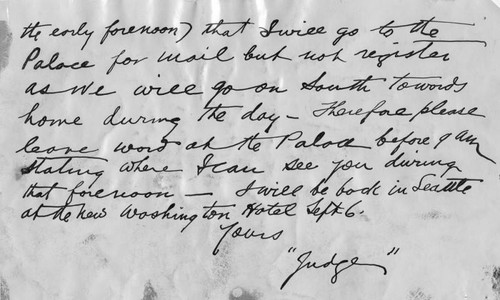 the early forenoon) that I will go to the
Palace for mail but not register
as we will go on South towards
home during the day – Therefore please
leave word at the Palace before 9 am
stating where I can see you during
that forenoon – I will be back in Seattle
at the New Washington Hotel Sept 6.
Yours
"Judge"